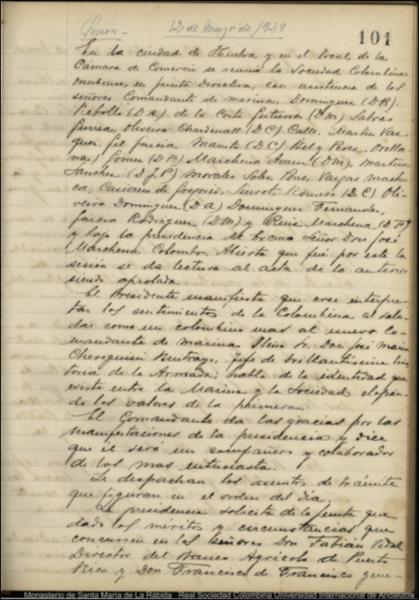 Sesión - 12 de Mayo de 1928
101
En la ciudad de Huelva y en el local de la
Cámara de Comercio se reunió la Sociedad Colombina
onubense, en junta Directiva, con asistencia de los
señores Comandante de marina, Dominguez (D R).
Rebollo (D A), de la Corte Gutierrez (D M), 
 Oliveira Chardenall (D C) Calle, Martin Vaz-
quez, Gil Garcia, 
 Gomez (D P) Marchena (D M), Martinez
Sanchez (D J P) Morales, Vargas Machu-
ca, Casiano de Gregorio, Romero (D E) Oli-
veira Dominguez (D A) Dominguez Fernandez,
Garcia Rodriguez (D M) y Ruiz Marchena (D F)
y bajo la presidencia del Excmo Señor Don José
Marchena Colombo. Abierta que fué por este la
sesión se da lectura al acta de la anterior
siendo aprobada.
El Presidente manifiesta que cree interpre-
tar los sentimientos de la Colombina al salu-
dar como un colombino mas al nuevo Co-
mandante de marina Iltmo Sr. Don José Maria
Chereguini Buitrago, jefe de brillantísima his-
toria de la Armada; habla de la identidad que
existe entre la Marina y la Sociedad elogian-
do los valores de la primera.
El Comandante da las gracias por las
manifestaciones de la presidencia y dice
que él será un compañero y colaborador
de los mas entusiasta.
Se despachan los asuntos de trámite
que figuran en el orden del día.
La presidencia solicita de la junta que
dado los méritos y circunstancias que
concurren en los señores Don Fabián Vidal
Director del Banco Agricola de Puerto
Rico y Don Francisco de Francisco gene-
Monasterio de Santa María de La Rábida. Real Sociedad Colombina. Universidad Internacional de Andalucía